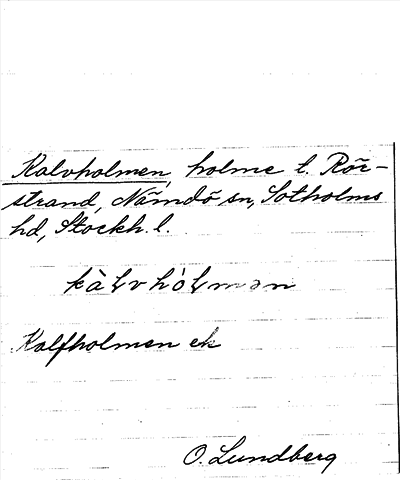 Kalvholmen, holme t. Rör-
strand, Nämdö sn, Sotholms
hd, Stockh. l.
kàlvhólmən
Kalfholmen ek
O. Lundberg